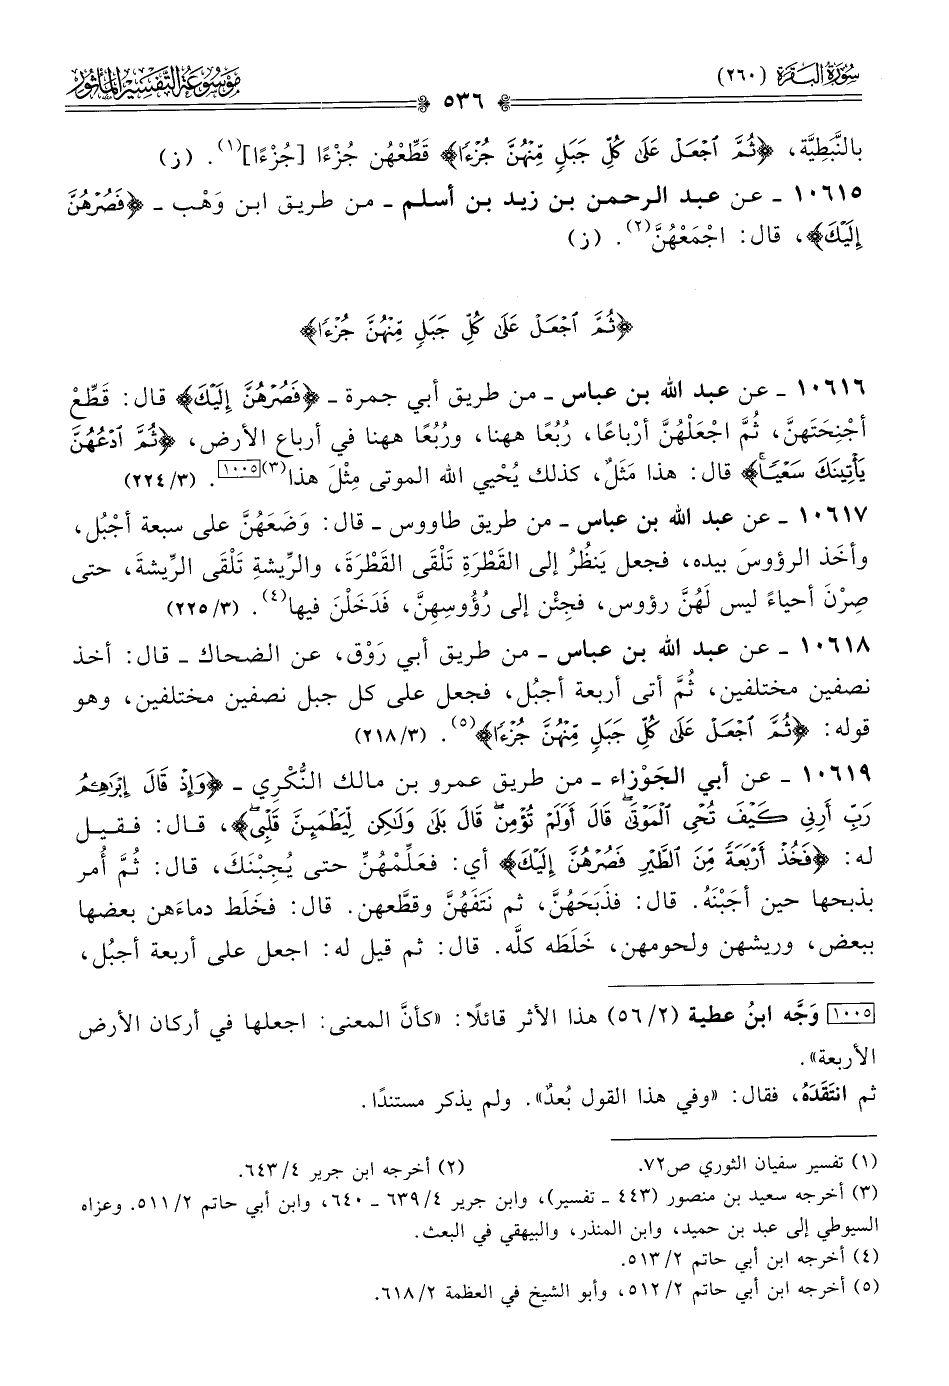 سُورَةُ البَقَرَة (٢٦٠)
٥٣٦
مَوْسُوعَةُ التَّفْسِيرِ المَأْثُور
بالنَّبَطِيَّة، ﴿ثُمَّ ٱجْعَلْ عَلَىٰ كُلِّ جَبَلٍ مِّنْهُنَّ جُزْءًا﴾ قَطِّعْهُن جُزْءًا [جُزْءًا](١). (ز)
١٠٦١٥ ـ عن عبد الرحمن بن زيد بن أسلم ـ من طريق ابن وَهْب ـ ﴿فَصُرْهُنَّ
إِلَيْكَ﴾، قال: اجْمَعْهُنَّ(٢). (ز)
﴿ثُمَّ ٱجْعَلْ عَلَىٰ كُلِّ جَبَلٍ مِّنْهُنَّ جُزْءًا﴾
١٠٦١٦ ـ عن عبد الله بن عباس ـ من طريق أبي جمرة ـ ﴿فَصُرْهُنَّ إِلَيْكَ﴾ قال: قَطِّعْ
أجْنِحَتَهنَّ، ثُمَّ اجْعَلْهُنَّ أرْباعًا، رُبُعًا ههنا، ورُبُعًا ههنا في أرباع الأرض، ﴿ثُمَّ ٱدْعُهُنَّ
يَأْتِينَكَ سَعْيًا﴾ قال: هذا مَثَلٌ، كذلك يُحْيي الله الموتى مِثْلَ هذا(٣)[١٠٠٥]. (٣/ ٢٢٤)
١٠٦١٧ ـ عن عبد الله بن عباس ـ من طريق طاووس ـ قال: وَضَعَهُنَّ على سبعة أجْبُل،
وأخَذ الرؤوسَ بيده، فجعل يَنظُرُ إلى القَطْرَةِ تَلْقَى القَطْرَةَ، والرِّيشةِ تَلْقَى الرِّيشةَ، حتى
صِرْنَ أحياءً ليس لَهُنَّ رؤوس، فجِئْن إلى رُؤُوسِهِنَّ، فَدَخَلْنَ فيها(٤). (٣/ ٢٢٥)
١٠٦١٨ ـ عن عبد الله بن عباس ـ من طريق أبي رَوْق، عن الضحاك ـ قال: أخذ
نصفين مختلفين، ثُمَّ أتى أربعة أجبُل، فجعل على كل جبل نصفين مختلفين، وهو
قوله: ﴿ثُمَّ ٱجْعَلْ عَلَىٰ كُلِّ جَبَلٍ مِّنْهُنَّ جُزْءًا﴾(٥). (٣/ ٢١٨)
١٠٦١٩ ـ عن أبي الجَوْزاء ـ من طريق عمرو بن مالك النُّكْري ـ ﴿وَإِذْ قَالَ إِبْرَٰهِـۧمُ
رَبِّ أَرِنِى كَيْفَ تُحْىِ ٱلْمَوْتَىٰ ۖ قَالَ أَوَلَمْ تُؤْمِن ۖ قَالَ بَلَىٰ وَلَـٰكِن لِّيَطْمَئِنَّ قَلْبِى ۖ﴾، قال: فقيل
له: ﴿فَخُذْ أَرْبَعَةً مِّنَ ٱلطَّيْرِ فَصُرْهُنَّ إِلَيْكَ﴾ أي: فعَلِّمْهُنَّ حتى يُجِبْنَكَ، قال: ثُمَّ أُمر
بذبحها حين أجَبْنَهُ. قال: فذَبَحَهُنَّ، ثم نَتَفَهُنَّ وقطَّعهن. قال: فخَلَط دماءَهن بعضها
ببعض، وريشهن ولحومهن، خَلَطَه كلَّه. قال: ثم قيل له: اجعل على أربعة أجبُل،
[١٠٠٥] وَجَّه ابنُ عطية (٢/ ٥٦) هذا الأثر قائلًا: «كأنَّ المعنى: اجعلها في أركان الأرض
الأربعة».
ثم انتَقَدَهُ، فقال: «وفي هذا القول بُعدٌ». ولم يذكر مستندًا.
(١) تفسير سفيان الثوري ص٧٢. (٢) أخرجه ابن جرير ٤/ ٦٤٣.
(٣) أخرجه سعيد بن منصور (٤٤٣ ـ تفسير)، وابن جرير ٤/ ٦٣٩ ـ ٦٤٠، وابن أبي حاتم ٢/ ٥١١. وعزاه
السيوطي إلى عبد بن حميد، وابن المنذر، والبيهقي في البعث.
(٤) أخرجه ابن أبي حاتم ٢/ ٥١٣.
(٥) أخرجه ابن أبي حاتم ٢/ ٥١٢، وأبو الشيخ في العظمة ٢/ ٦١٨.